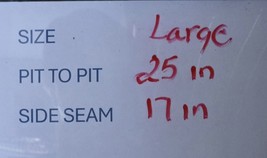 SIZE Large
PIT TO PIT 25 in
SIDE SEAM 17 in